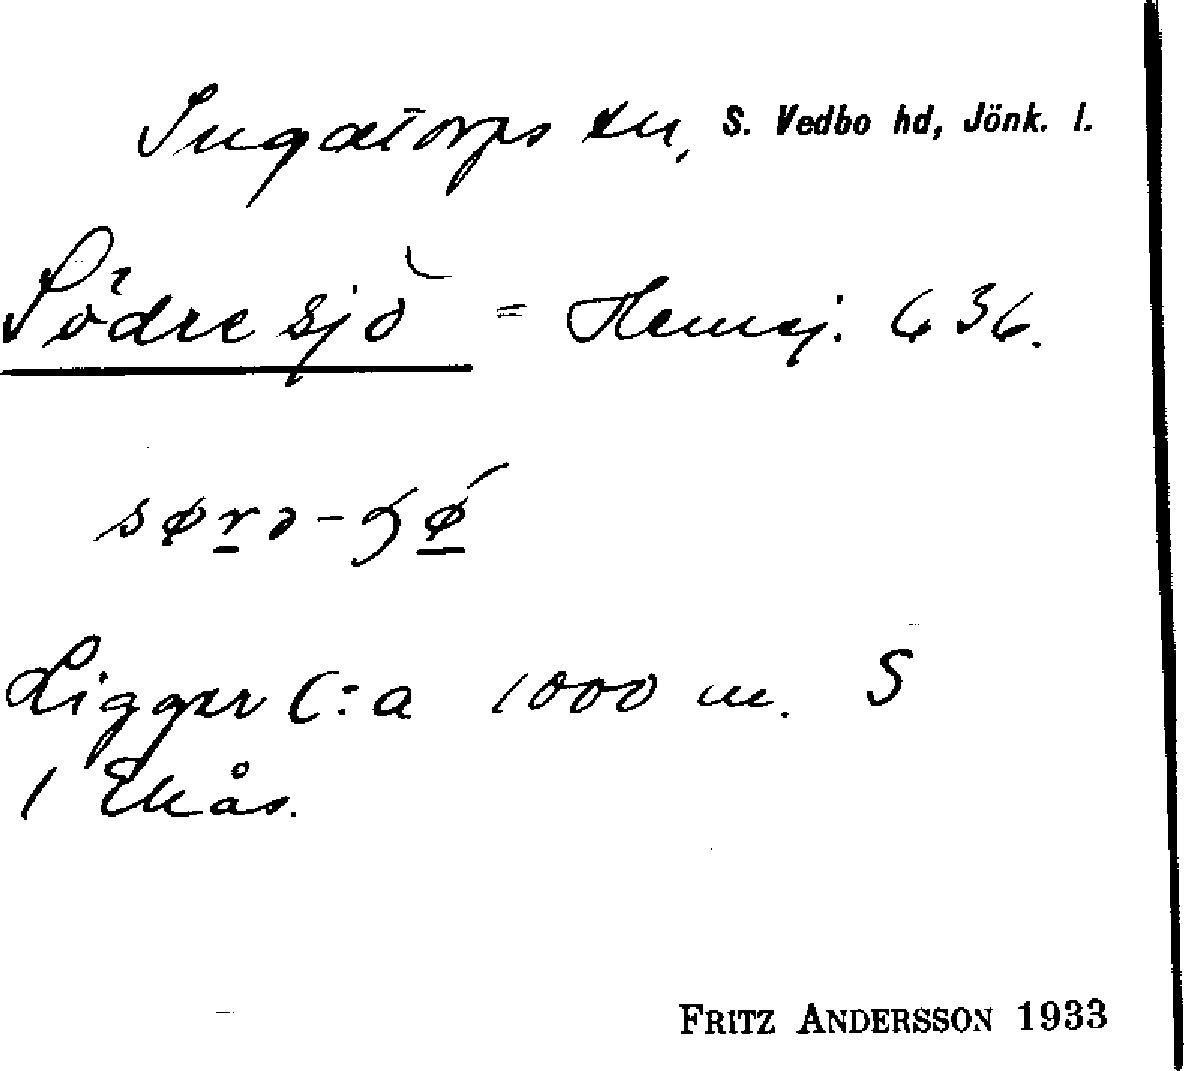 Ingatorps sn, S. Vedbo hd, Jönk. l.
Södre sjö = Hemsj. G 36.
Ligger C:a 1000 m. S
/ Ekås.
FRITZ ANDERSSON 1933